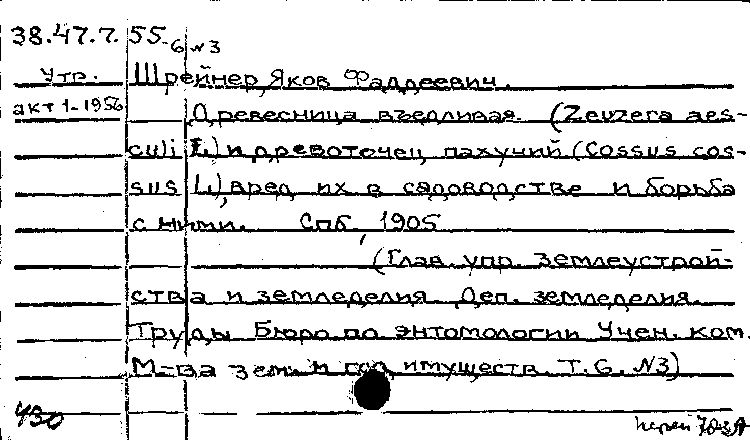 38.47.7. 55-6 N3
Утр. Шрейнер, Яков Фаддеевич.
акт 1-1956 Древесница въедливая (Zeuzera aes-
culi L.) и древоточец пахучий (Cossus cos-
sus L.), вред их в садоводстве и борьба
с ними. Спб, 1905
(Глав. упр. землеустрой-
ства и земледелия. Деп. земледелия.
Труды Бюро по энтомологии Учен. ком.
М-ва зем. и гос. имуществ. Т. 6. N3)
430